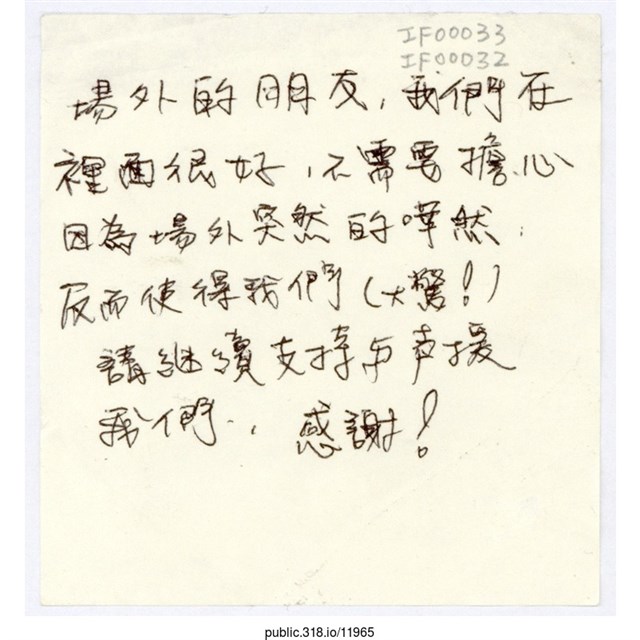 IF00033
IF00032
場外的朋友,我們在
裡面很好,不需要擔心
因為場外突然的嘩然.
反而使得我們(大驚!)
請継續支持与声援
我們.,感謝!
public.318.io/11965